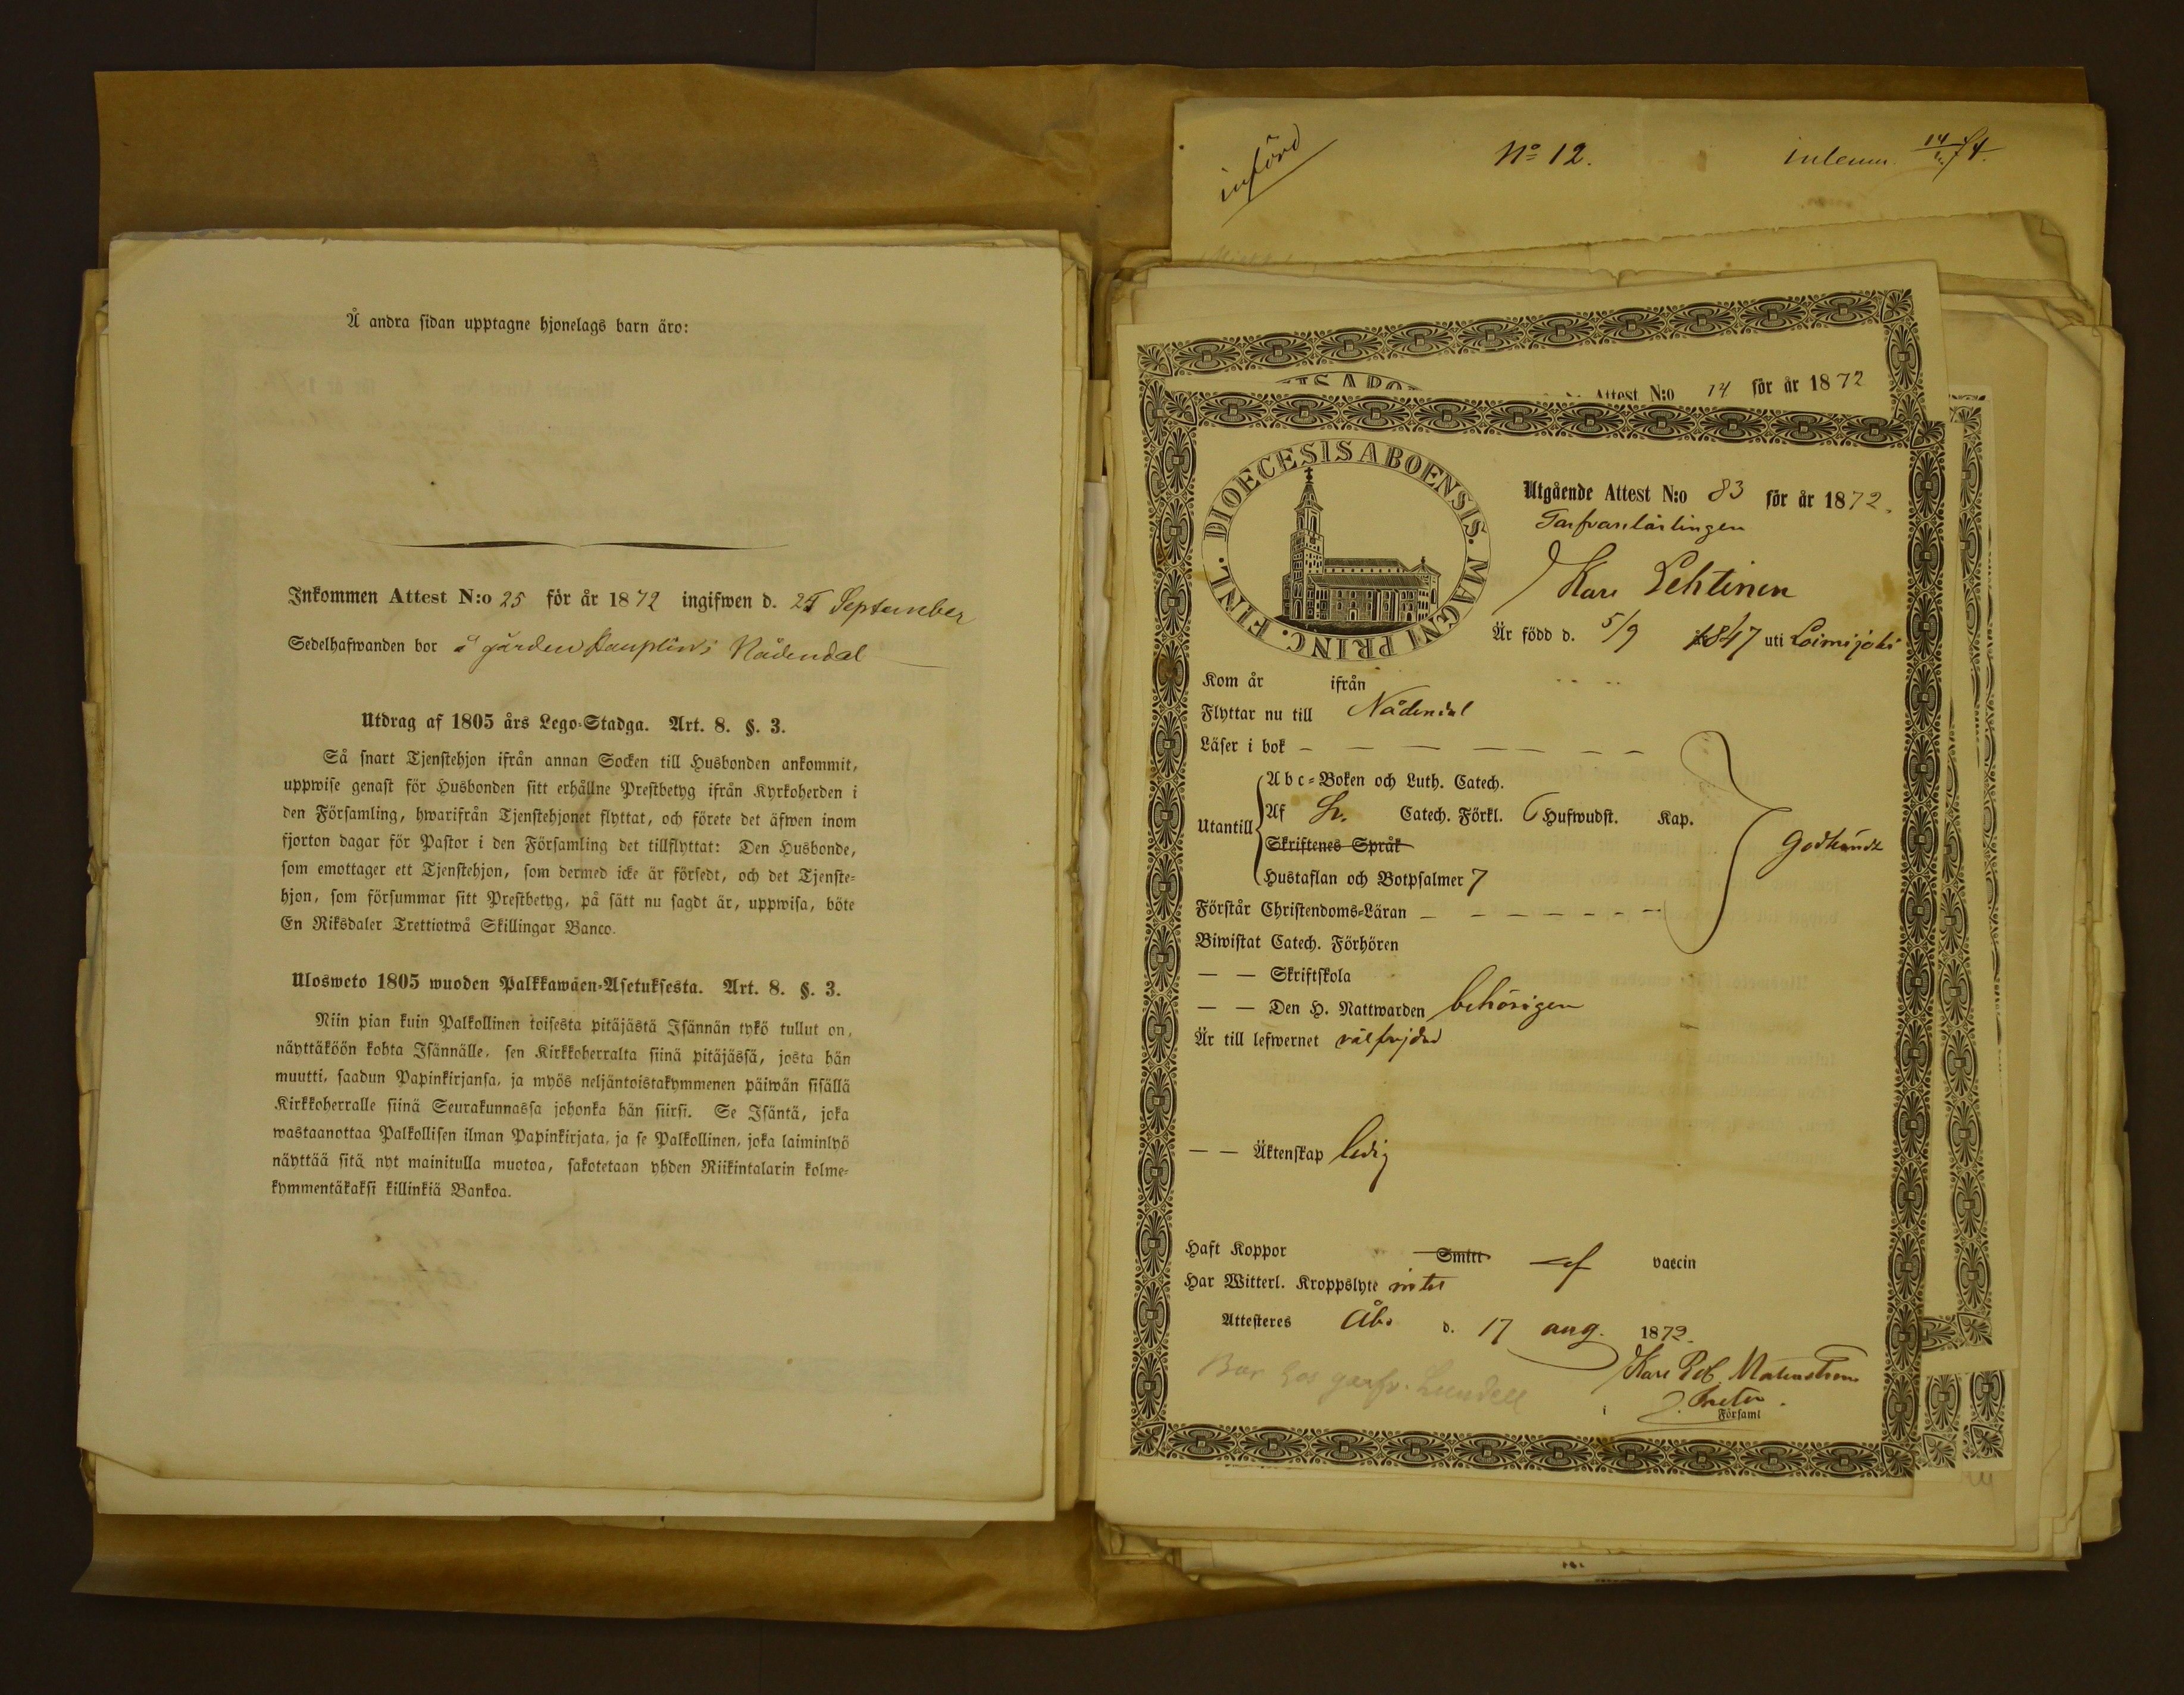 Å andra sidan upptagne hjonelags barn äro:
Inkommen Attest N:o 25 för år 1872 ingifwen d. 25 September
Sedelhafwanden bor å gården Nådendal
Utdrag af 1805 års Lego-Stadga. Art. 8. §. 3.
Så snart Tjenstehjon ifrån annan Socken till Husbonden ankommit,
uppwise genast för Husbonden sitt erhållne Prestbetyg ifrån Kyrkoherden i
den Församling, hwarifrån Tjenstehjonet flyttat, och förete det äfwen inom
fjorton dagar för Pastor i den Församling det tillflyttat: Den Husbonde,
som emottager ett Tjenstehjon, som dermed icke är försedt, och det Tjenste-
hjon, som försummar sitt Prestbetyg, på sätt nu sagdt är, uppwisa, böte
En Riksdaler Trettiotwå Skillingar Banco.
Ulosweto 1805 wuoden Palkkawäen-Asetuksesta. Art. 8. §. 3.
Niin pian kuin Palkollinen toisesta pitäjästä Isännän tykö tullut on,
näyttäköön kohta Isännälle, sen Kirkkoherralta siinä pitäjässä, josta hän
muutti, saadun Papinkirjansa, ja myös neljäntoistakymmenen päiwän sisällä
Kirkkoherralle siinä Seurakunnassa johonka hän siirsi. Se Isäntä, joka
wastaanottaa Palkollisen ilman Papinkirjata, ja se Palkollinen, joka laiminlyö
näyttää sitä nyt mainitulla muotoa, sakotetaan yhden Riikintalarin kolme-
kymmentäkaksi killinkiä Bankoa.
införd
No 12.
14 74.
Attest N:o 14 för år 1872
DIOECESIS ABOENSIS. MAGNI PRINC. FINL.
Utgående Attest N:o 83 för år 1872.
Garfvarelärlingen
Karl Lehtinen
Är född d. 5/9 1847 uti Loimijoki
Kom år ifrån
Flyttar nu till Nådendal
Läser i bok
Utantill
Abc-Boken och Luth. Catech.
Af Sv. Catech. Förkl. 6 Hufwudst. Kap.
Skriftenes Språk
Hustaflan och Botpsalmer 7
Godkändt
Förstår Christendoms-Läran
Biwistat Catech. Förhören
— — Skriftskola
— — Den H. Nattwarden behörigen
Är till lefwernet välfrejdad
— — Äktenskap ledig
Haft Koppor Smitt af vaccin
Har Witterl. Kroppslyte intet
Attesteres Åbo d. 17 aug. 1872.
Karl Rob. Malmström
Bor hos garfv. Lundell
i Församl